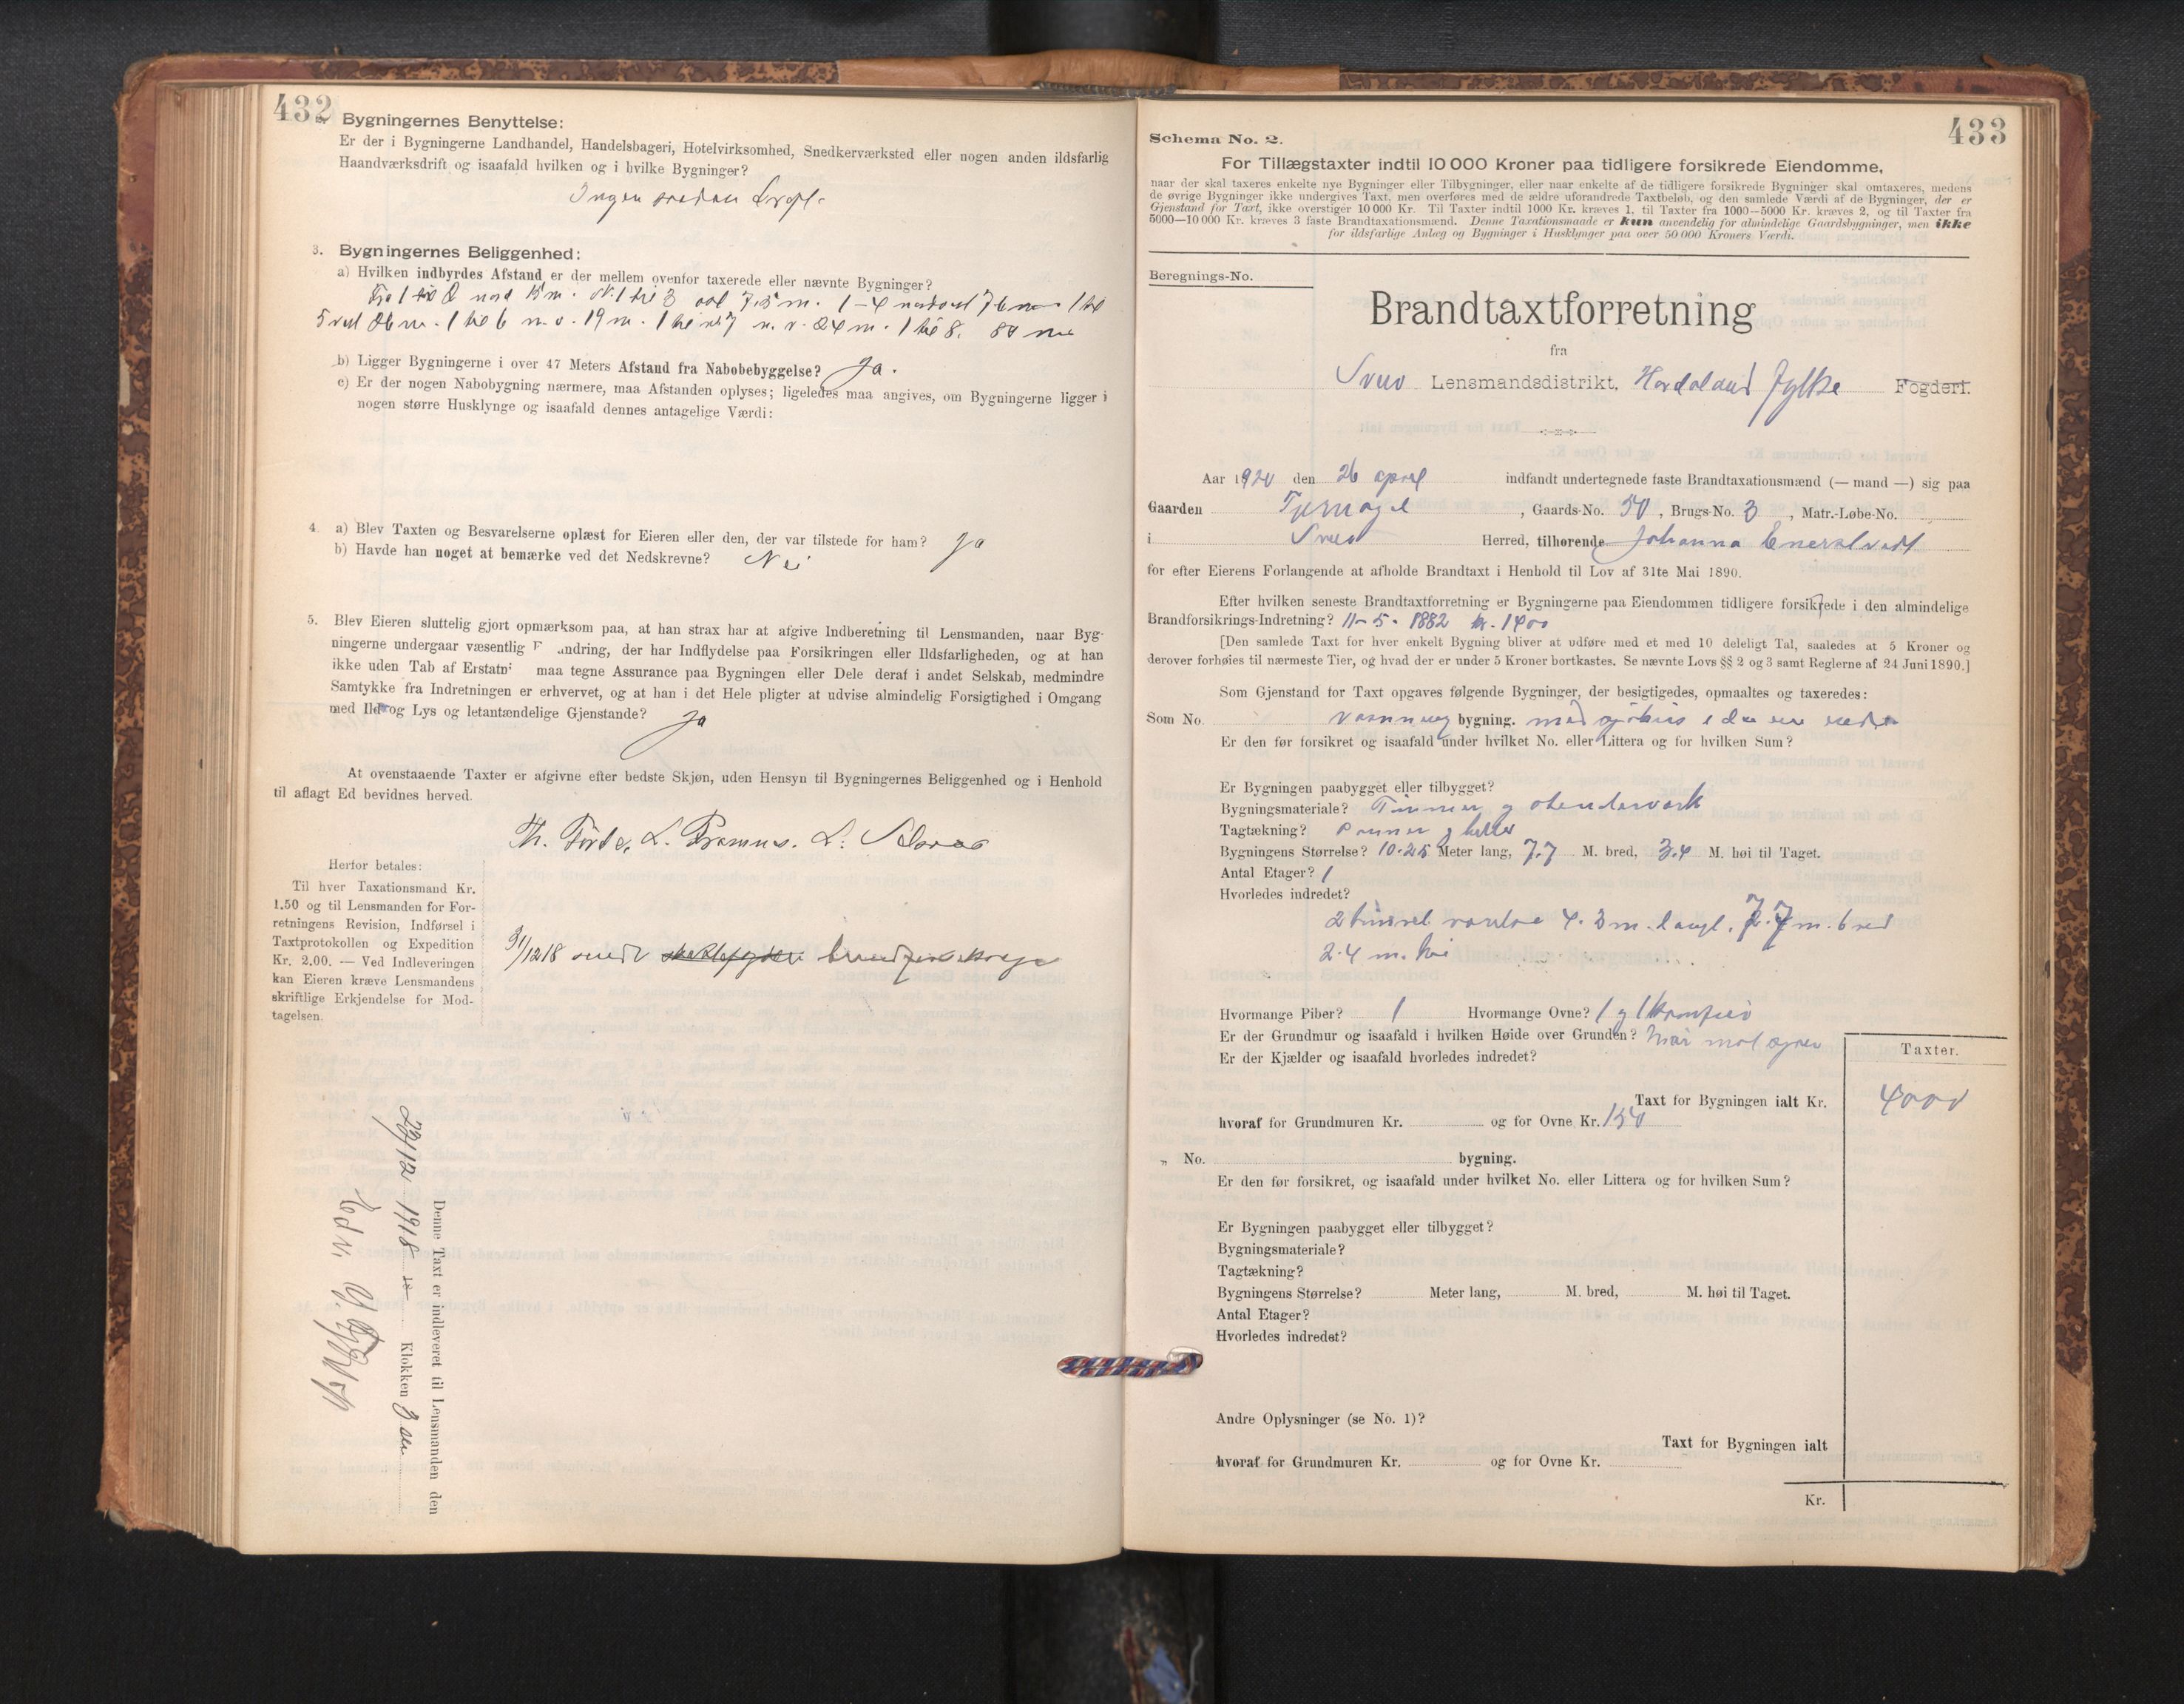 432
2. Bygningernes Benyttelse:
Er der i Bygningerne Landhandel, Handelsbageri, Hotelvirksomhed, Snedkerværksted eller nogen anden ildsfarlig
Haandværksdrift og isaafald hvilken og i hvilke Bygninger?
Ingen saadan
3. Bygningernes Beliggenhed:
a) Hvilken indbyrdes Afstand er der mellem ovenfor taxerede eller nævnte Bygninger?
Fra 1 til 2 nord 15 m. N. 1 til 3 ost 7.5 m. 1-4 nordost 76 m. 1 til
5 vest 26 m. 1 til 6 n.v. 19 m. 1 til 7 n.v. 24 m. 1 til 8. 84 m
b) Ligger Bygningerne i over 47 Meters Afstand fra Nabobebyggelse? Ja.
c) Er der nogen Nabobygning nærmere, maa Afstanden oplyses; ligeledes maa angives, om Bygningerne ligger i
nogen større Husklynge og isaafald dennes antagelige Værdi:
4. a) Blev Taxten og Besvarelserne oplæst for Eieren eller den, der var tilstede for ham? Ja
b) Havde han noget at bemærke ved det Nedskrevne? Nei
5. Blev Eieren sluttelig gjort opmærksom paa, at han strax har at afgive Indberetning til Lensmanden, naar Byg-
ningerne undergaar væsentlig F andring, der har Indflydelse paa Forsikringen eller Ildsfarligheden, og at han
ikke uden Tab af Erstatn maa tegne Assurance paa Bygningen eller Dele deraf i andet Selskab, medmindre
Samtykke fra Indretningen er erhvervet, og at han i det Hele pligter at udvise almindelig Forsigtighed i Omgang
med Ild og Lys og letantændelige Gjenstande? Ja
At ovenstaaende Taxter er afgivne efter bedste Skjøn, uden Hensyn til Bygningernes Beliggenhed og i Henhold
til aflagt Ed bevidnes herved.
Th. Førde. L.
Herfor betales:
Til hver Taxationsmand Kr.
1.50 og til Lensmanden for For-
retningens Revision, Indførsel i
Taxtprotokollen og Expedition
Kr. 2.00. — Ved Indleveringen
kan Eieren kræve Lensmandens
skriftlige Erkjendelse for Mod-
tagelsen.
31/12 18 sendt
Denne Taxt er indleveret til Lensmanden den
23/12 1918 Klokken 3
433
Schema No. 2.
For Tillægstaxter indtil 10 000 Kroner paa tidligere forsikrede Eiendomme,
naar der skal taxeres enkelte nye Bygninger eller Tilbygninger, eller naar enkelte af de tidligere forsikrede Bygninger skal omtaxeres, medens
de øvrige Bygninger ikke undergives Taxt, men overføres med de ældre uforandrede Taxtbeløb, og den samlede Værdi af de Bygninger, der er
Gjenstand for Taxt, ikke overstiger 10 000 Kr. Til Taxter indtil 1000 Kr. kræves 1, til Taxter fra 1000—5000 Kr. kræves 2, og til Taxter fra
5000—10 000 Kr. kræves 3 faste Brandtaxationsmænd. Denne Taxationsmaade er kun anvendelig for almindelige Gaardsbygninger, men ikke
for ildsfarlige Anlæg og Bygninger i Husklynger paa over 50 000 Kroners Værdi.
Beregnings-No.
Brandtaxtforretning
fra
Sveio Lensmandsdistrikt, Hordaland Fylke Fogderi.
Aar 1920 den 26 april indfandt undertegnede faste Brandtaxationsmænd (— mand —) sig paa
Gaarden Tjernagel, Gaards-No. 50, Brugs-No. 3, Matr.-Løbe-No.
i Sveio Herred, tilhørende Johanna
for efter Eierens Forlangende at afholde Brandtaxt i Henhold til Lov af 31te Mai 1890.
Efter hvilken seneste Brandtaxtforretning er Bygningerne paa Eiendommen tidligere forsikrede i den almindelige
Brandforsikrings-Indretning? 11-5-1882 kr. 1400
[Den samlede Taxt for hver enkelt Bygning bliver at udføre med et med 10 deleligt Tal, saaledes at 5 Kroner og
derover forhøies til nærmeste Tier, og hvad der er under 5 Kroner bortkastes. Se nævnte Lovs §§ 2 og 3 samt Reglerne af 24 Juni 1890.]
Som Gjenstand for Taxt opgaves følgende Bygninger, der besigtigedes, opmaaltes og taxeredes:
Som No. vaanning bygning. med sjöhus i den ene ende
Er den før forsikret og isaafald under hvilket No. eller Littera og for hvilken Sum?
Er Bygningen paabygget eller tilbygget?
Bygningsmateriale? Timmer og stenderverk
Tagtækning? Panner g heller
Bygningens Størrelse? 10.25 Meter lang, 7.7 M. bred, 3.4 M. høi til Taget.
Antal Etager? 1
Hvorledes indredet?
2 4.3 m. langt. 7.7 m. bred
2.4 m. høi
Hvormange Piber? 1 Hvormange Ovne? 1 g 1 komfur
Er der Grundmur og isaafald i hvilken Høide over Grunden? mur mot sjøen
Er der Kjælder og isaafald hvorledes indredet?
Taxter.
Taxt for Bygningen ialt Kr. 4000
hvoraf for Grundmuren Kr. og for Ovne Kr. 150
„ No. bygning.
Er den før forsikret, og isaafald under hvilket No. eller Littera og for hvilken Sum?
Er Bygningen paabygget eller tilbygget?
Bygningsmateriale?
Tagtækning?
Bygningens Størrelse? Meter lang, M. bred, M. høi til Taget.
Antal Etager?
Hvorledes indredet?
Andre Oplysninger (se No. 1)?
Taxt for Bygningen ialt
hvoraf for Grundmuren Kr. og for Ovne Kr.
Kr.